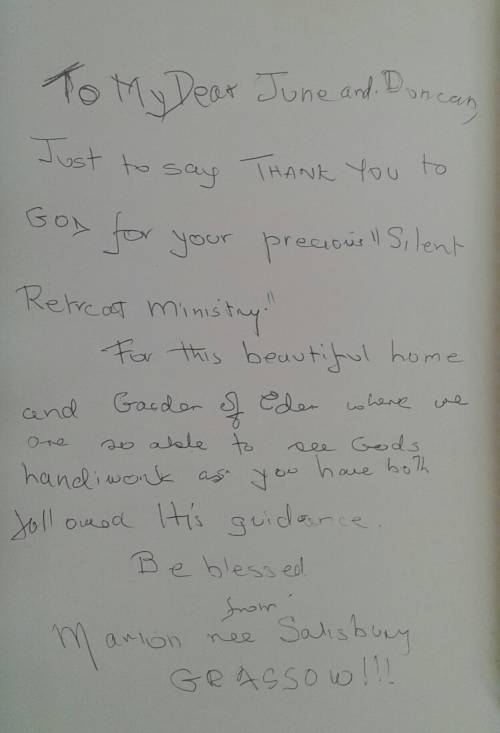 To My Dear June and. Duncan,
Just to say THANK YOU to
GOD for your precious "Silent
Retreat Ministry."
For this beautiful home
and Garden of Eden where we
are so able to see Gods
handiwork as you have both
followed His guidance.
Be blessed
from
Marion nee Salisbury
GRASSOW!!!